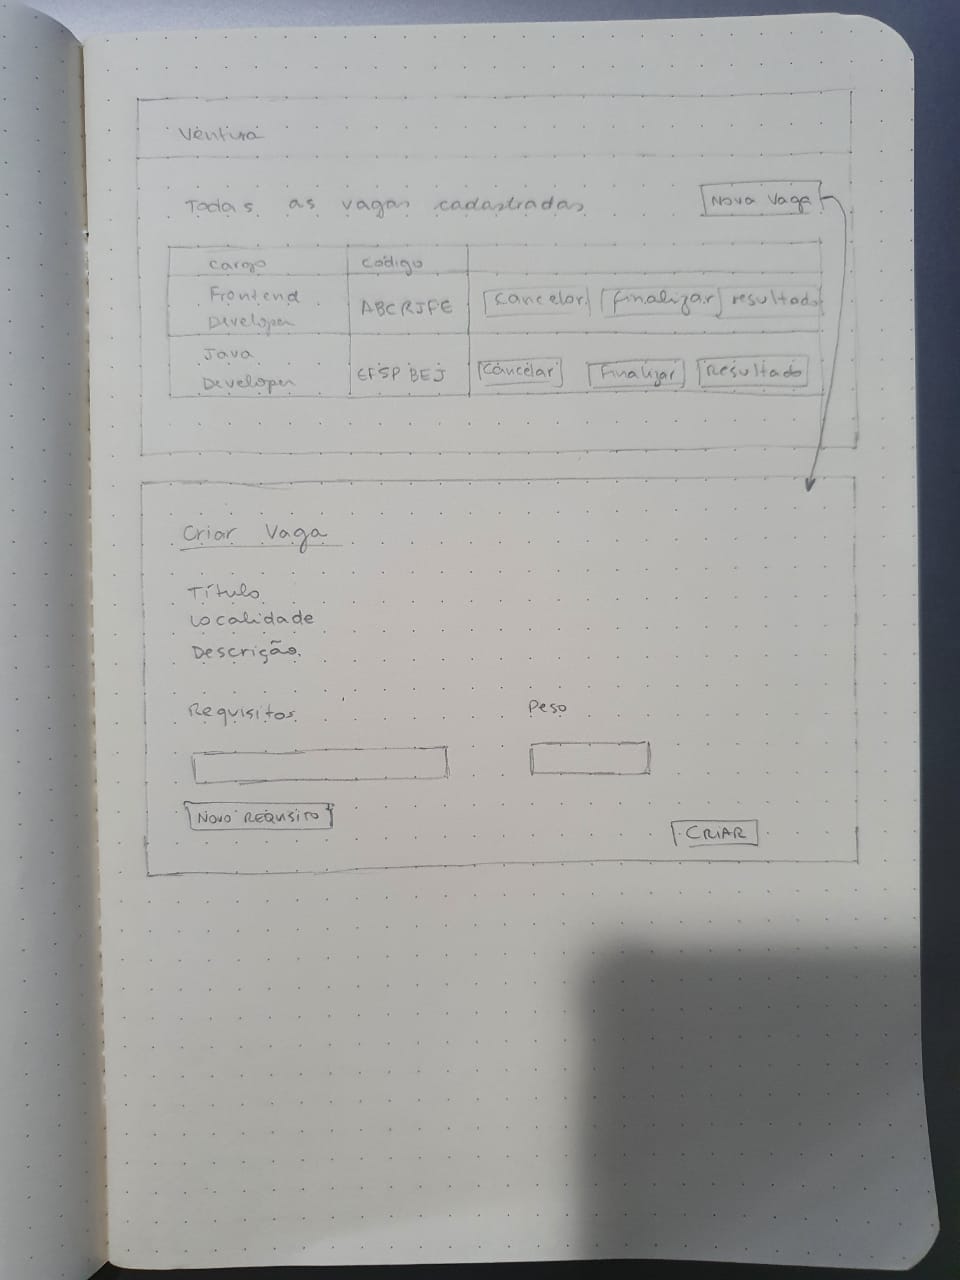 Ventura
Todas as vagas cadastradas
Nova Vaga
Cargo Código
Frontend
Developer
ABCRJFE Cancelar Finalizar resultado
Java
Developer
EFSP BEJ Cancelar Finalizar Resultado
Criar Vaga
Título
Localidade
Descrição
Requisitos Peso
NOVO REQUSITO
CRIAR